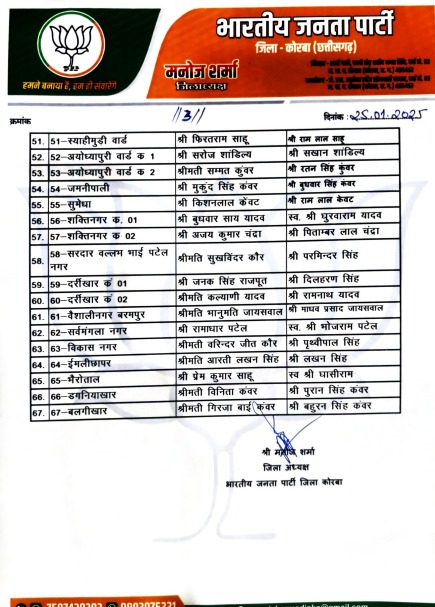 भारतीय जनता पार्टी
जिला - कोरबा (छत्तीसगढ़)
मनोज शर्मा
जिलाध्यक्ष
हमने बनाया है, हम ही संवारेंगे
क्रमांक //3// दिनांक : 25.01.2025
51. 51-स्याहीमुड़ी वार्ड श्री फिरतराम साहू श्री राम लाल साहू
52. 52-अयोध्यापुरी वार्ड क 1 श्री सरोज शांडिल्य श्री सखान शांडिल्य
53. 53-अयोध्यापुरी वार्ड क 2 श्रीमती सम्मत कुंवर श्री रतन सिंह कुंवर
54. 54-जमनीपाली श्री मुकुंद सिंह कंवर श्री बुधवार सिंह कंवर
55. 55-सुमेधा श्री किशनलाल केंवट श्री राम लाल केवट
56. 56-शक्तिनगर क. 01 श्री बुधवार साय यादव स्व. श्री घुरवाराम यादव
57. 57-शक्तिनगर क 02 श्री अजय कुमार चंद्रा श्री पिताम्बर लाल चंद्रा
58. 58-सरदार वल्लभ भाई पटेल नगर श्रीमति सुखविंदर कौर श्री परमिन्दर सिंह
59. 59-दर्रीखार क 01 श्री जनक सिंह राजपूत श्री दिलहरण सिंह
60. 60-दर्रीखार क 02 श्रीमति कल्याणी यादव श्री रामनाथ यादव
61. 61-वैशालीनगर बरमपुर श्रीमति भानुमति जायसवाल श्री माधव प्रसाद जायसवाल
62. 62-सर्वमंगला नगर श्री रामाधार पटेल स्व. श्री भोजराम पटेल
63. 63-विकास नगर श्रीमती वरिन्दर जीत कौर श्री पृथ्वीपाल सिंह
64. 64-ईमलीछापर श्रीमति आरती लखन सिंह श्री लखन सिंह
65. 65-भैरोताल श्री प्रेम कुमार साहू स्व श्री घासीराम
66. 66-डगनियाखार श्रीमती विनिता कंवर श्री पुरान सिंह कंवर
67. 67-बलगीखार श्रीमती गिरजा बाई कंवर श्री बहुरन सिंह कंवर
श्री मनोज शर्मा
जिला अध्यक्ष
भारतीय जनता पार्टी जिला कोरबा